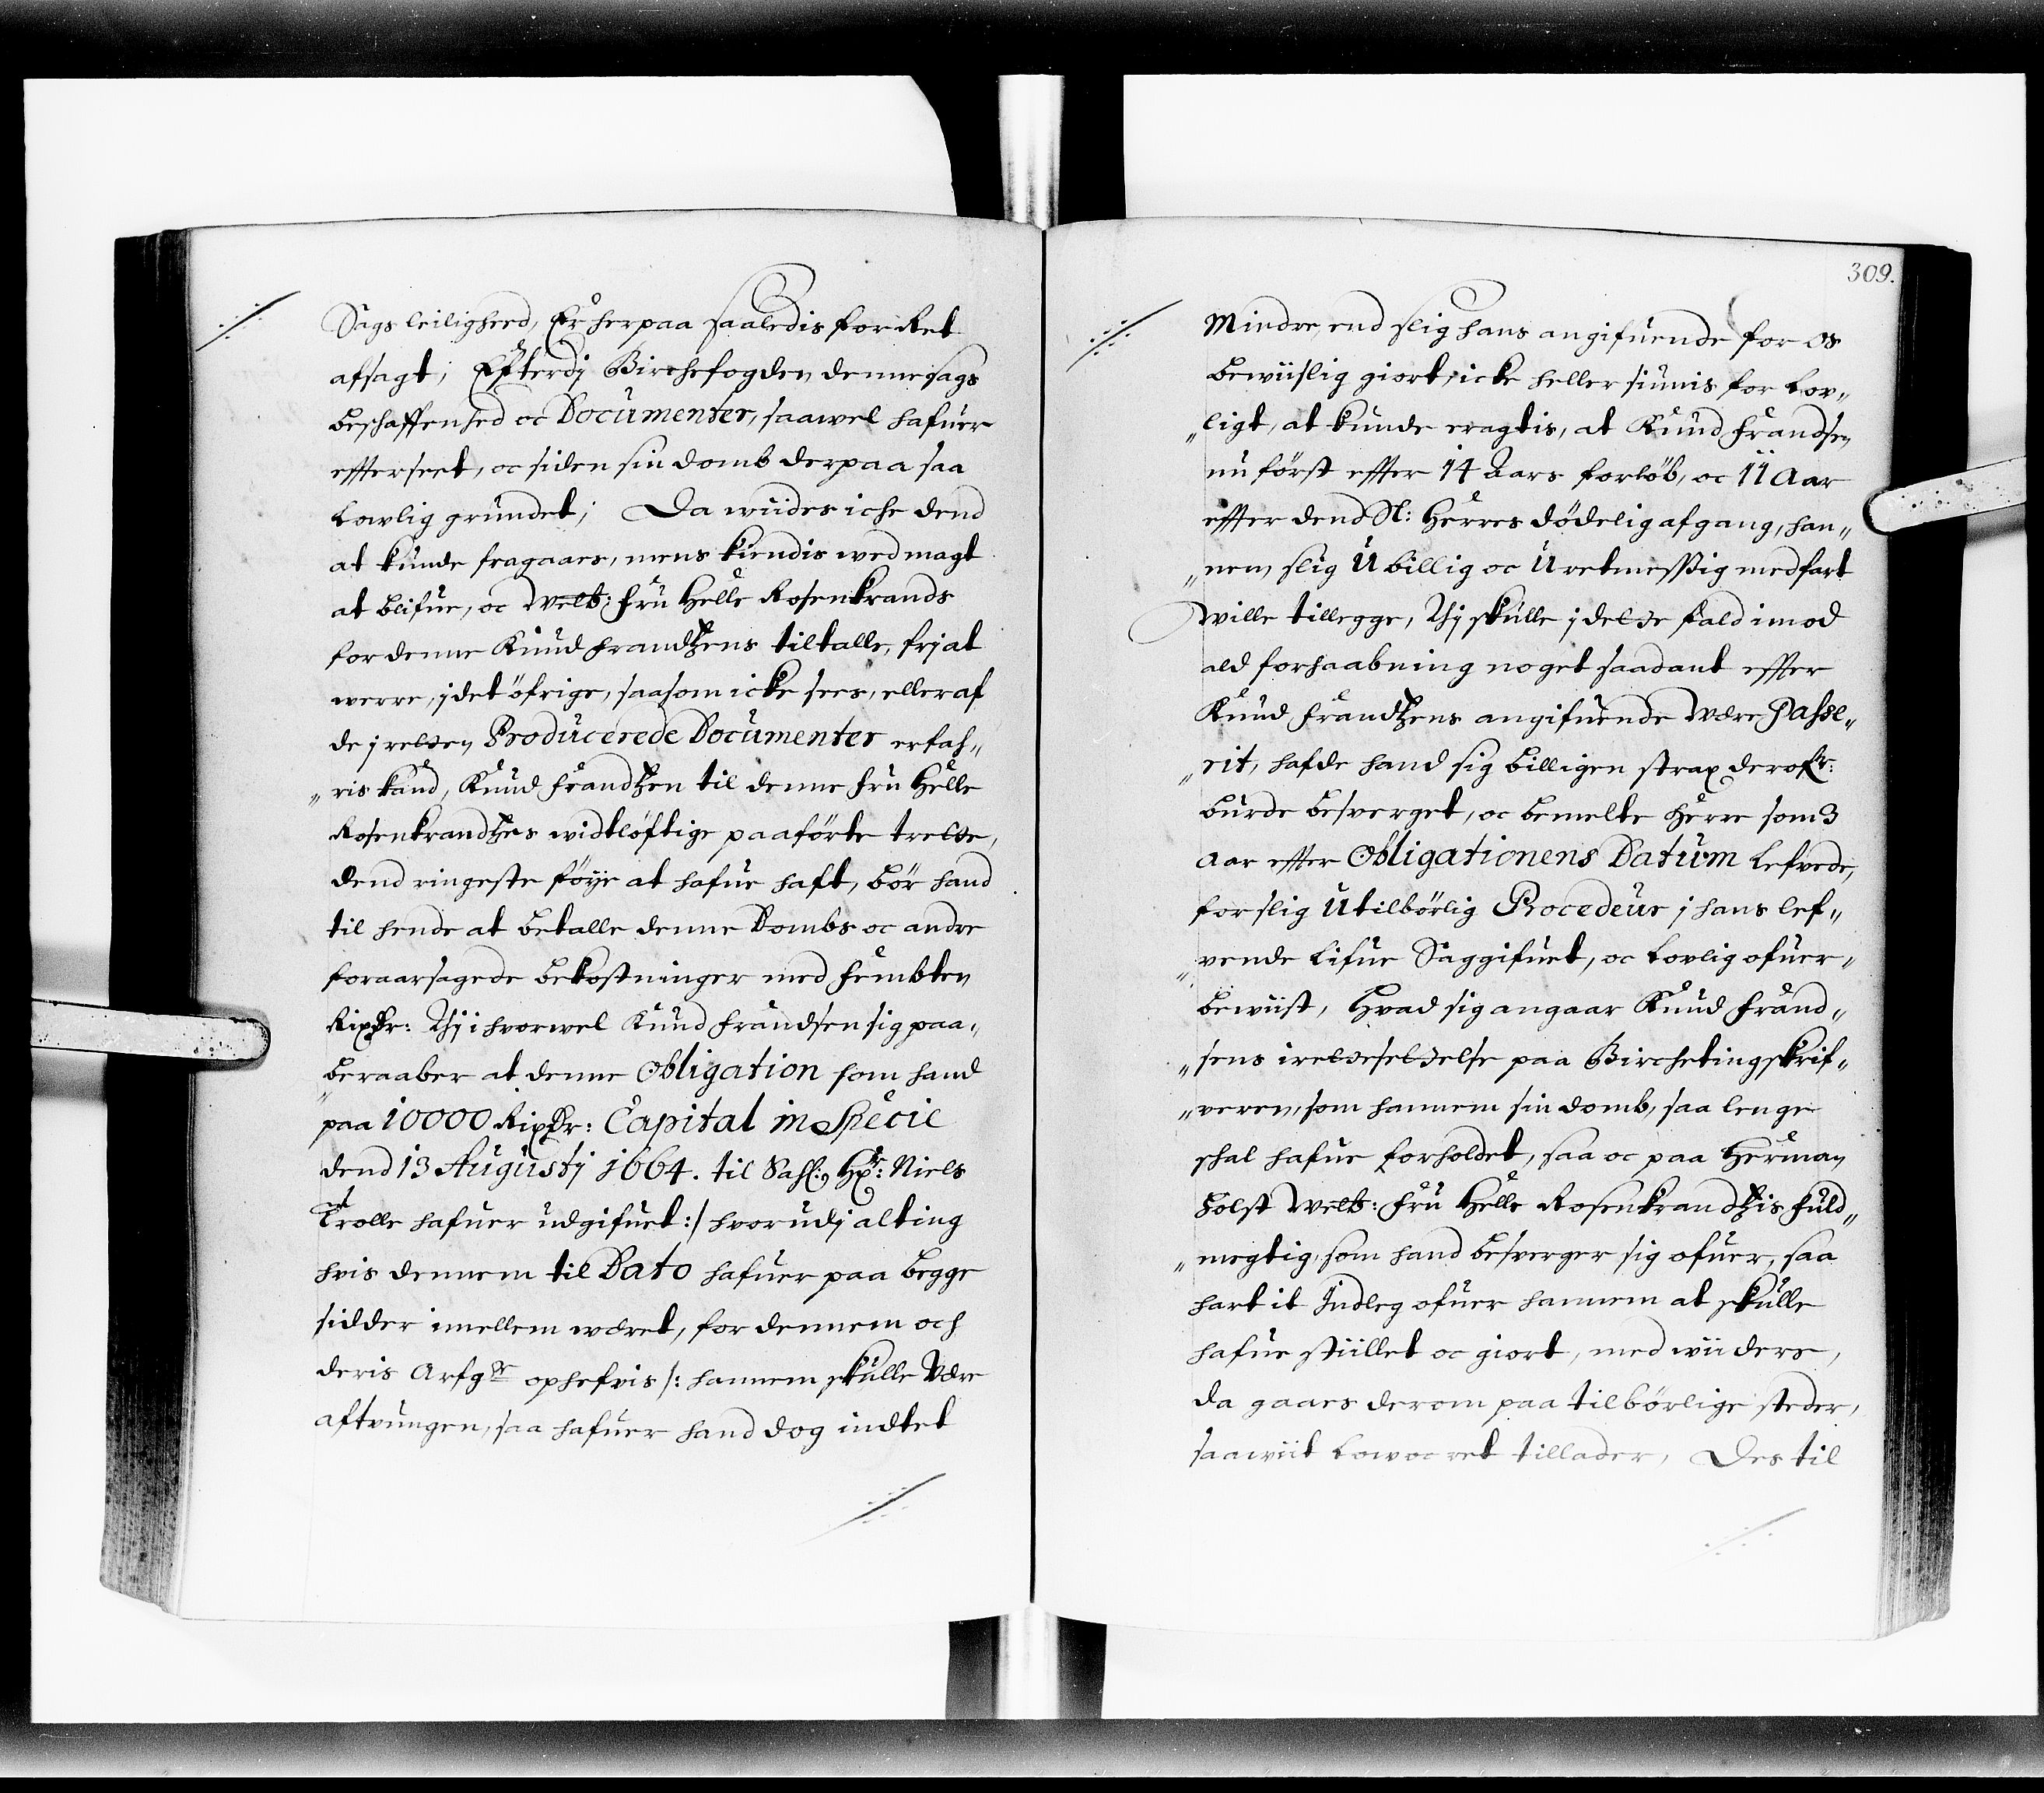 Sags leiligheed, Er herpaa saaledis for Ret
afsagt; Efterdj Birchefogden denne sags
beschaffenhed oc Documenter, saawel hafuer
effterseet, oc siden sin domb derpaa saa
Lowlig grundet; Da wiides iche dend
at kunde fragaaes, mens kiendis ved magt
at blifue, oc Welb: Fru Helle Rosenkrands
for denne Knud Frandtzens tiltalle, frj at
werre, j det öfrige, saasom icke sees, eller af
de j retten Producerede Documenter erfah„
„ris kand, Knud Frandtzen til denne Fru Helle
Rosenkrandtzes widtløftige paaførte trette,
dend ringeste föye at hafue haft, bör hand
til hende at betalle denne Dombs oc andre
foraarsagede bekostninger med Fembten
Rixdr: Thj i hvorwel Knud Frandsen sig paa„
„beraaber at denne Obligation som hand
paa 10000 Rixdr: Capital in Specie
dend 13 Augustj 1664. til Sahl: Hr: Niels
Trolle hafuer udgifuet :/ hvorudj alting
hvis dennem til Dato hafuer paa begge
sidder imellem wæret, for dennem och
deris Arfgr ophefvis /: hannem skulle Være
aftvungen, saa hafuer hand dog indtet
309.
Mindre, end slig hans angifuende for os
bewiislig giort, icke heller siunis for Lov„
„ligt, at kunde eragtis, at Knud Frandsen
nu först effter 14 Aars forlöb, oc 11 Aar
effter dend Sl: Herres dödelig afgang, han„
„nem slig Ubillig oc Uretmessig medfart
wille tillegge, Thj skulle j dette fald imod
ald forhaabning noget saadant effter
Knud Frandtzens angifuende Være Passe„
„rit, hafde hand sig billigen strax derofr:
burde besverget, oc bemelte Herre som 3
Aar effter Obligationens Datum Lefvede,
for slig Utilbörlig Procedeur j hans lef„
„vende Lifue Saggifuet, oc Lovlig ofuer„
bewiist, Hvad sig angaar Knud Frand„
„sens irettesettelse paa Birchetingskrif„
„veren, som hannem sin domb, saa lenge
schal hafue forholdet, saa oc paa Herman
Holst Welb: Fru Helle Rosenkrandtzis Fuld„
„megtig, som hand besverger sig ofuer, saa
hart it Indleg ofuer hannem at skulle
hafue stiillet oc giort, med wiidere,
da gaaes derom paa tilbörlige steder,
saawiit Low oc ret tillader, Des til